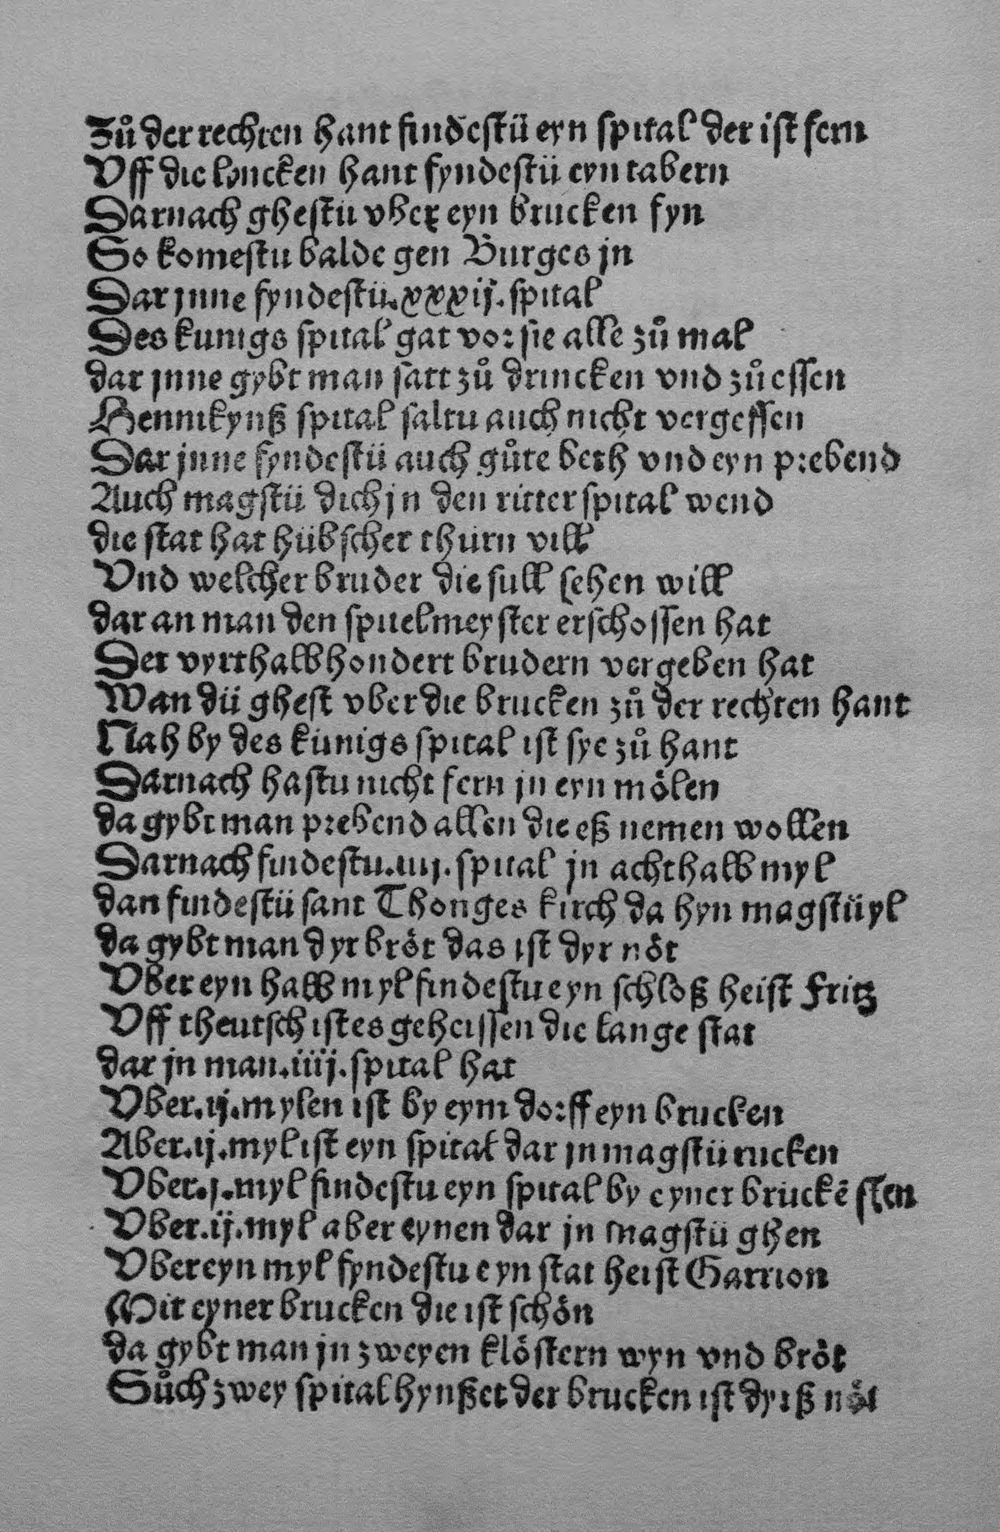 Zů der rechten hant findestü eyn spital der ist fern
Vff die lyncken hant fyndestü eyn tabern
Darnach ghestu vber eyn brucken fyn
So komestu balde gen Burges jn
Dar jnne fyndestü.xxxij.spital
Des kunigs spital gat vor sie alle zů mal
dar jnne gybt man satt zů drincken vnd zů essen
Hennikynß spital saltu auch nicht vergessen
Dar jnne fyndestü auch gůte beth vnd eyn prebend
Auch magstü dich jn den ritter spital wend
die stat hat hübscher thürn vill
Vnd welcher bruder die sull sehen will
dar an man den spitelmeyster erschossen hat
Der vyrthalbhondert brudern vergeben hat
Wan dü ghest vber die brucken zů der rechten hant
Nah by des künigs spital ist sye zů hant
Darnach hastu nicht fern jn eyn mölen
da gybt man prebend allen die eß nemen wollen
Darnach findestu.iiij.spital jn achthalb myl
dan findestü sant Thonges kirch da hyn magstü yl
da gybt man dyr bröt das ist dyr nöt
Vber eyn halb myl findestu eyn schloß heist Fritz
Vff theutsch ist es geheissen die lange stat
dar jn man.iiij.spital hat
Vber.ij.mylen ist by eym dorff eyn brucken
Aber.ij.myl ist eyn spital dar jn magstü rucken
Vber.j.myl findestu eyn spital by eyner bruckē sten
Vber.ij.myl aber eynen dar jn magstü ghen
Vber eyn myl fyndestu eyn stat heist Garrion
Mit eyner brucken die ist schön
da gybt man jn zweyen klöstern wyn vnd bröt
Sůch zwey spital hynßet der brucken ist dyrß nöt